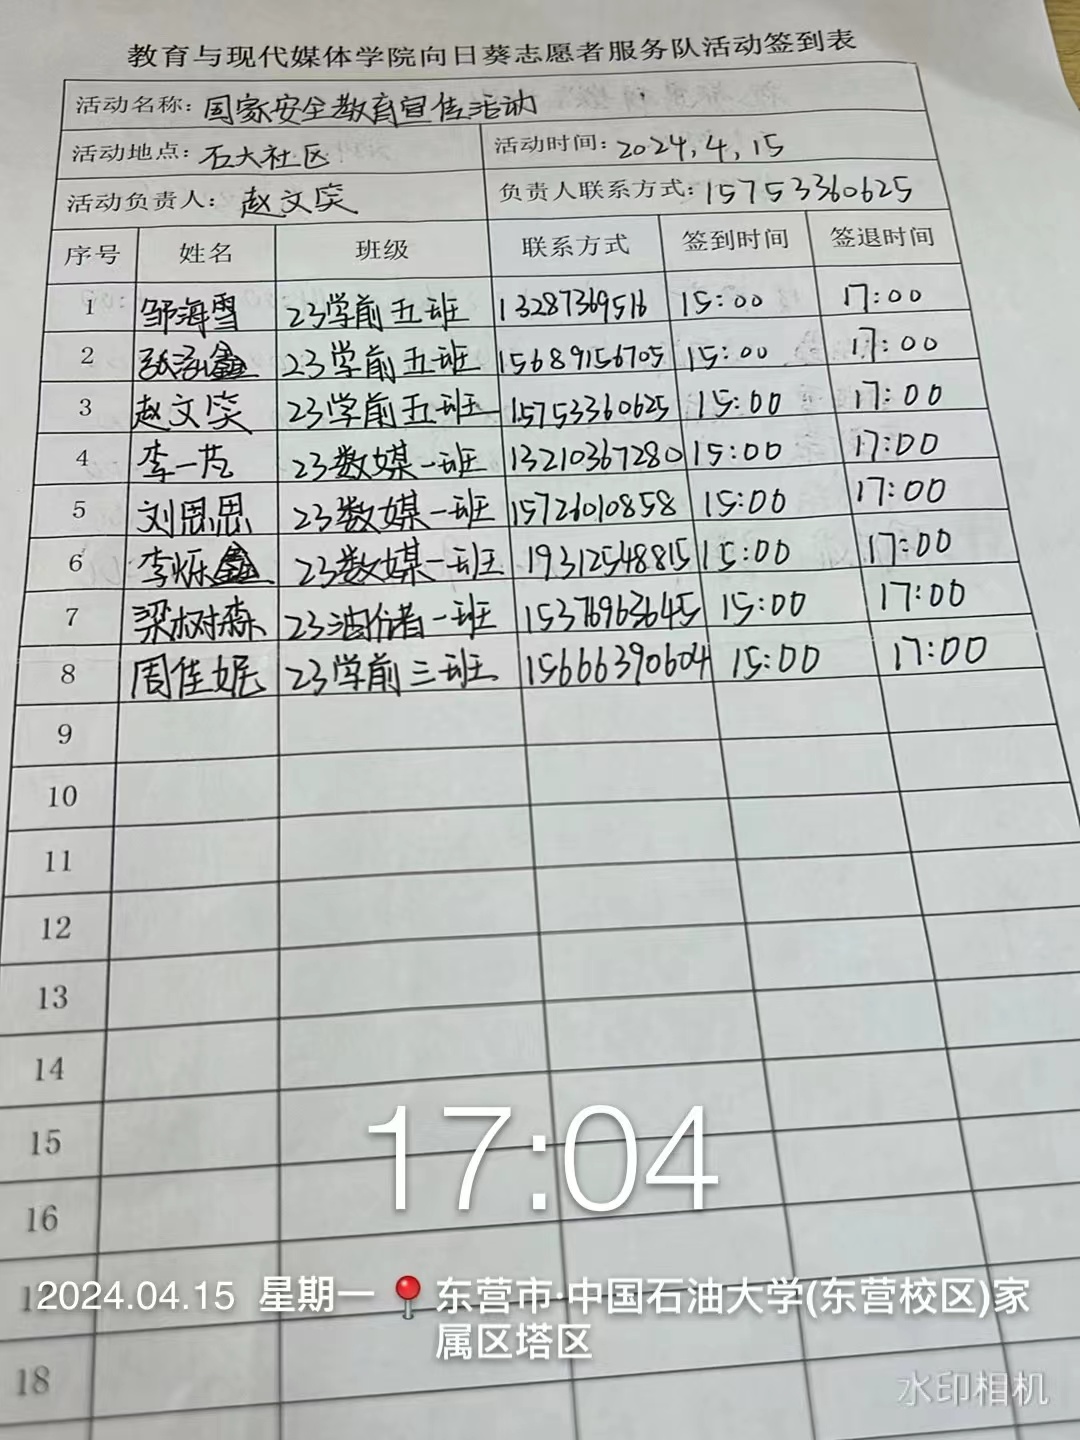 教育与现代媒体学院向日葵志愿者服务队活动签到表
活动名称: 国家安全教育宣传活动
活动地点: 石大社区 活动时间: 2024.4.15
活动负责人: 赵文笑 负责人联系方式: 15753360625
序号 姓名 班级 联系方式 签到时间 签退时间
1 邹海雪 23学前五班 13287369516 15:00 17:00
2 张泓鑫 23学前五班 15689156705 15:00 17:00
3 赵文笑 23学前五班 15753360625 15:00 17:00
4 李一 23数媒一班 13210367280 15:00 17:00
5 刘思思 23数媒一班 15726010858 15:00 17:00
6 李烁鑫 23数媒一班 19312548815 15:00 17:00
7 梁树森 23油储一班 15376963645 15:00 17:00
8 周佳妮 23学前三班 15666390604 15:00 17:00
9
10
11
12
13
14
15
16
18
17:04
2024.04.15 星期一 东营市·中国石油大学(东营校区)家
属区塔区
水印相机